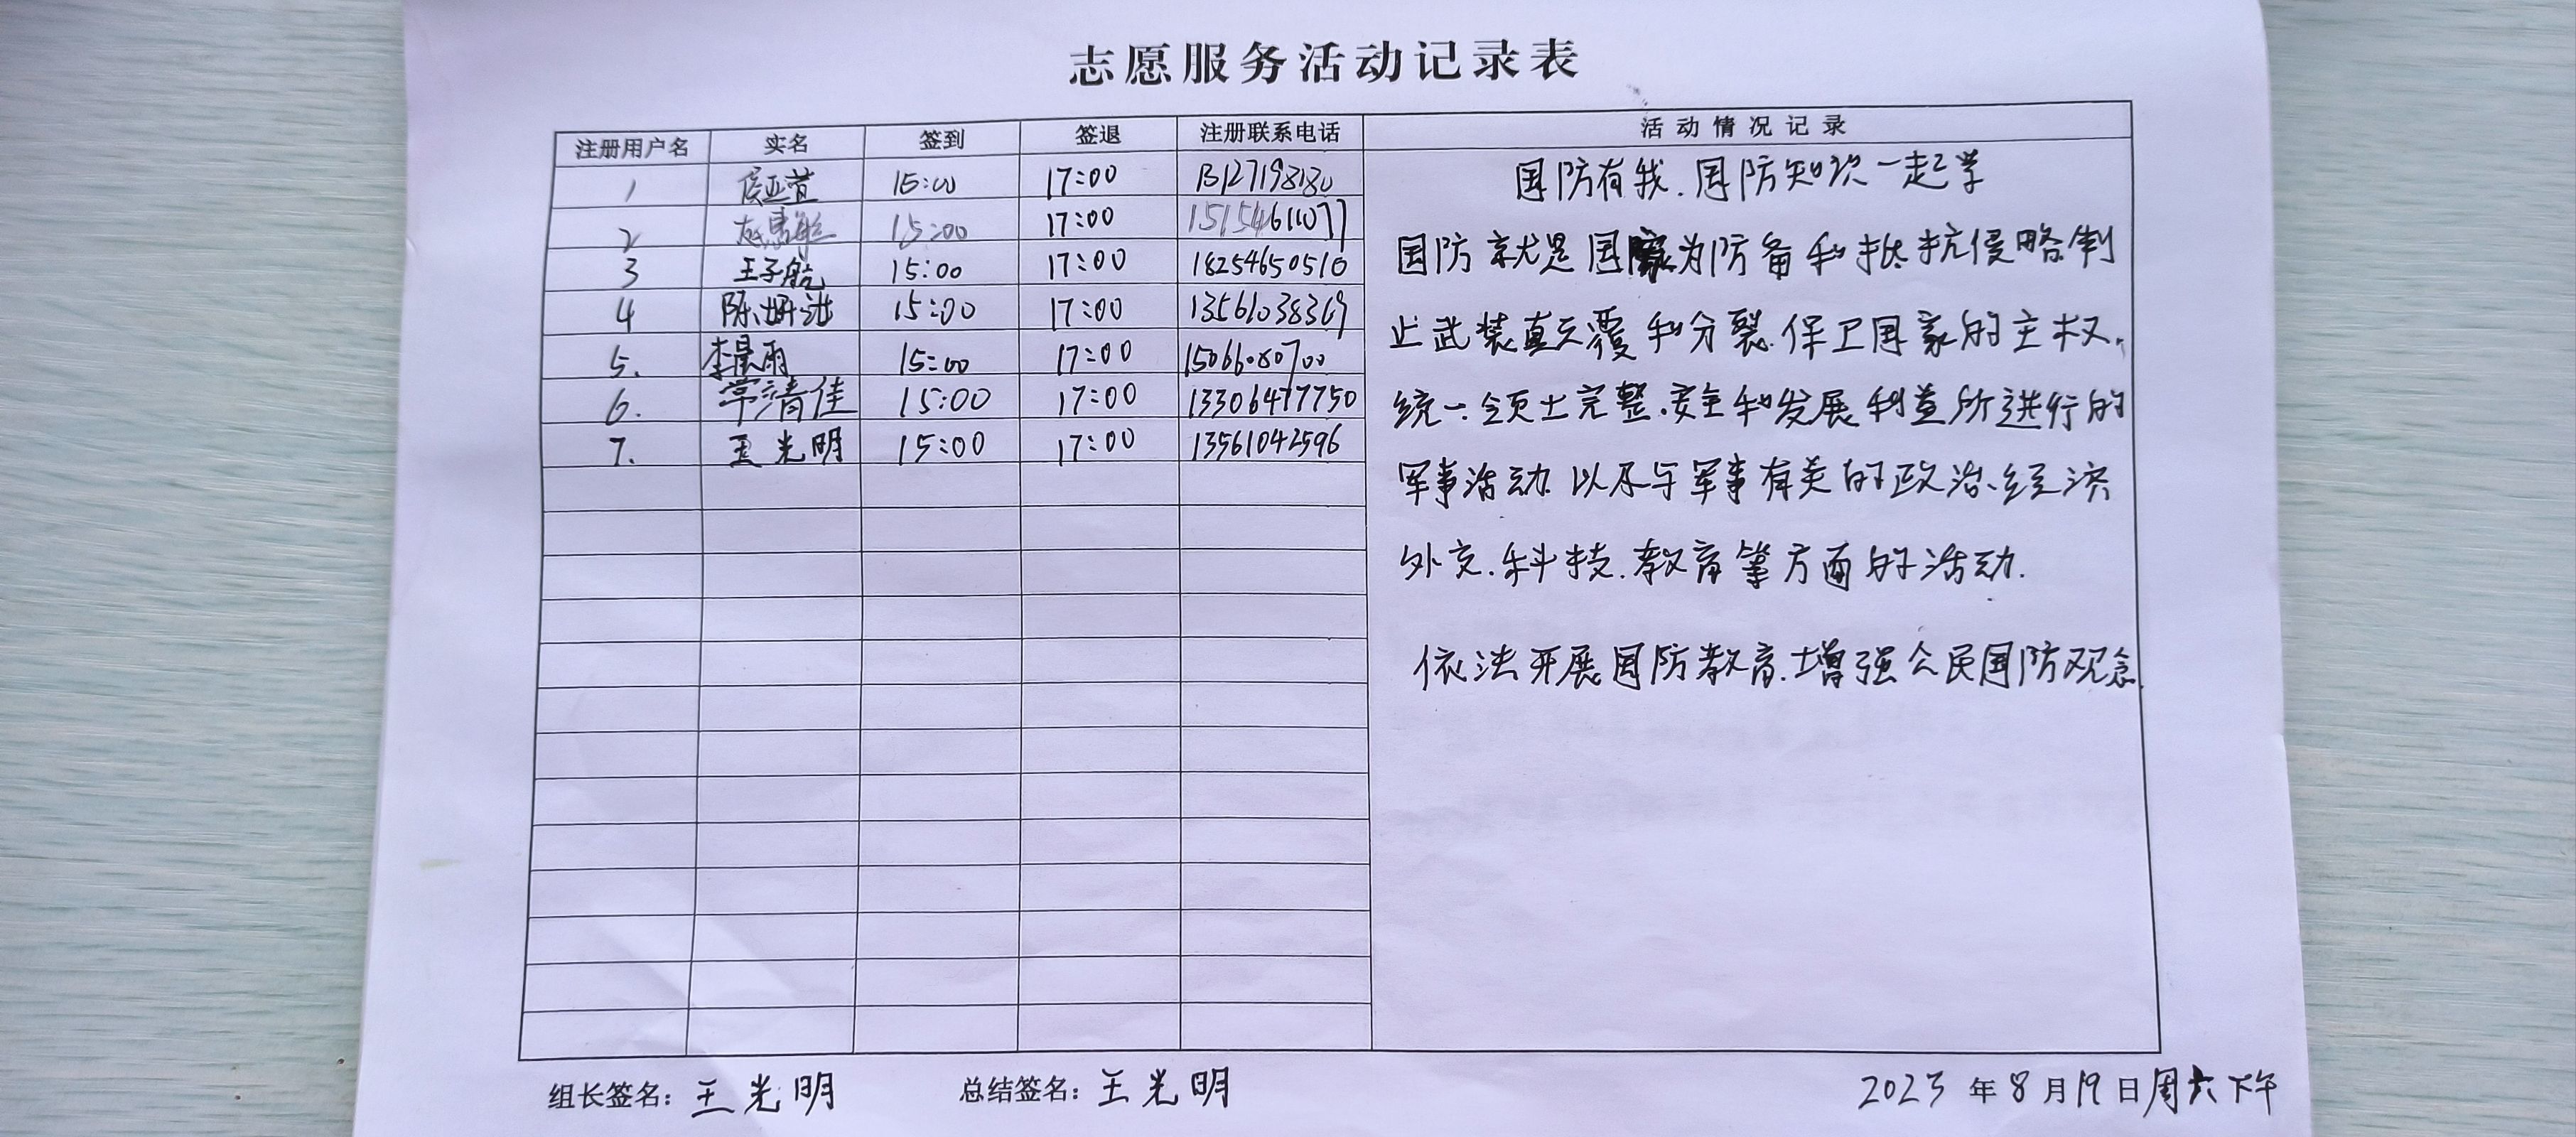 志愿服务活动记录表
注册用户名 实名 签到 签退 注册联系电话 活动情况记录
1 15:00 17:00 13127198180
2 15:00 17:00 15154611077
3 王子航 15:00 17:00 18254650510
4 陈妍洁 15:00 17:00 13561038369
5. 李晨雨 15:00 17:00 15066080700
6. 常清佳 15:00 17:00 13306477750
7. 王光明 15:00 17:00 13561042596
国防有我.国防知识一起学
国防就是国家为防备和抵抗侵略制
止武装颠覆和分裂.保卫国家的主权、
统一、领土完整、安全和发展利益所进行的
军事活动.以及与军事有关的政治、经济
外交.科技.教育等方面的活动.
依法开展国防教育.增强公民国防观念.
组长签名：王光明 总结签名：王光明 2023年8月19日周六下午